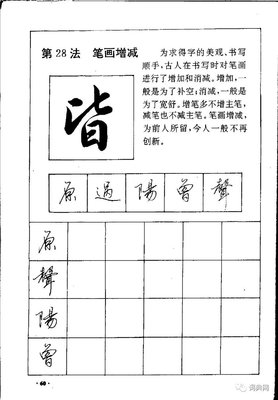 第28法 笔画增减
为求得字的美观、书写
顺手，古人在书写时对笔画
进行了增加和消减。增加，一
般是为了补空；消减，一般是
为了宽舒。增笔多不增主笔，
减笔也不减主笔。笔画增减，
为前人所留，今人一般不再
创新。
皆
原 過 陽 曾 聲
原
聲
陽
曾
·60·
词典网